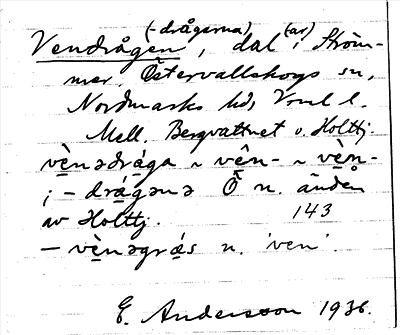 (-drågarna) (ar)
Vendrågen, dal i Ström-
mer, Östervallskogs sn,
Nordmarks hd, Vrml l.
Mell. Bergvattnet o. Holttj.
vènədrá̱ga ~ vên- ~ vèn-
; - drá̱gənə Ö n. änden
av Holttj. 143
- vènəgrás n. 'ven'.
E. Andersson 1936.